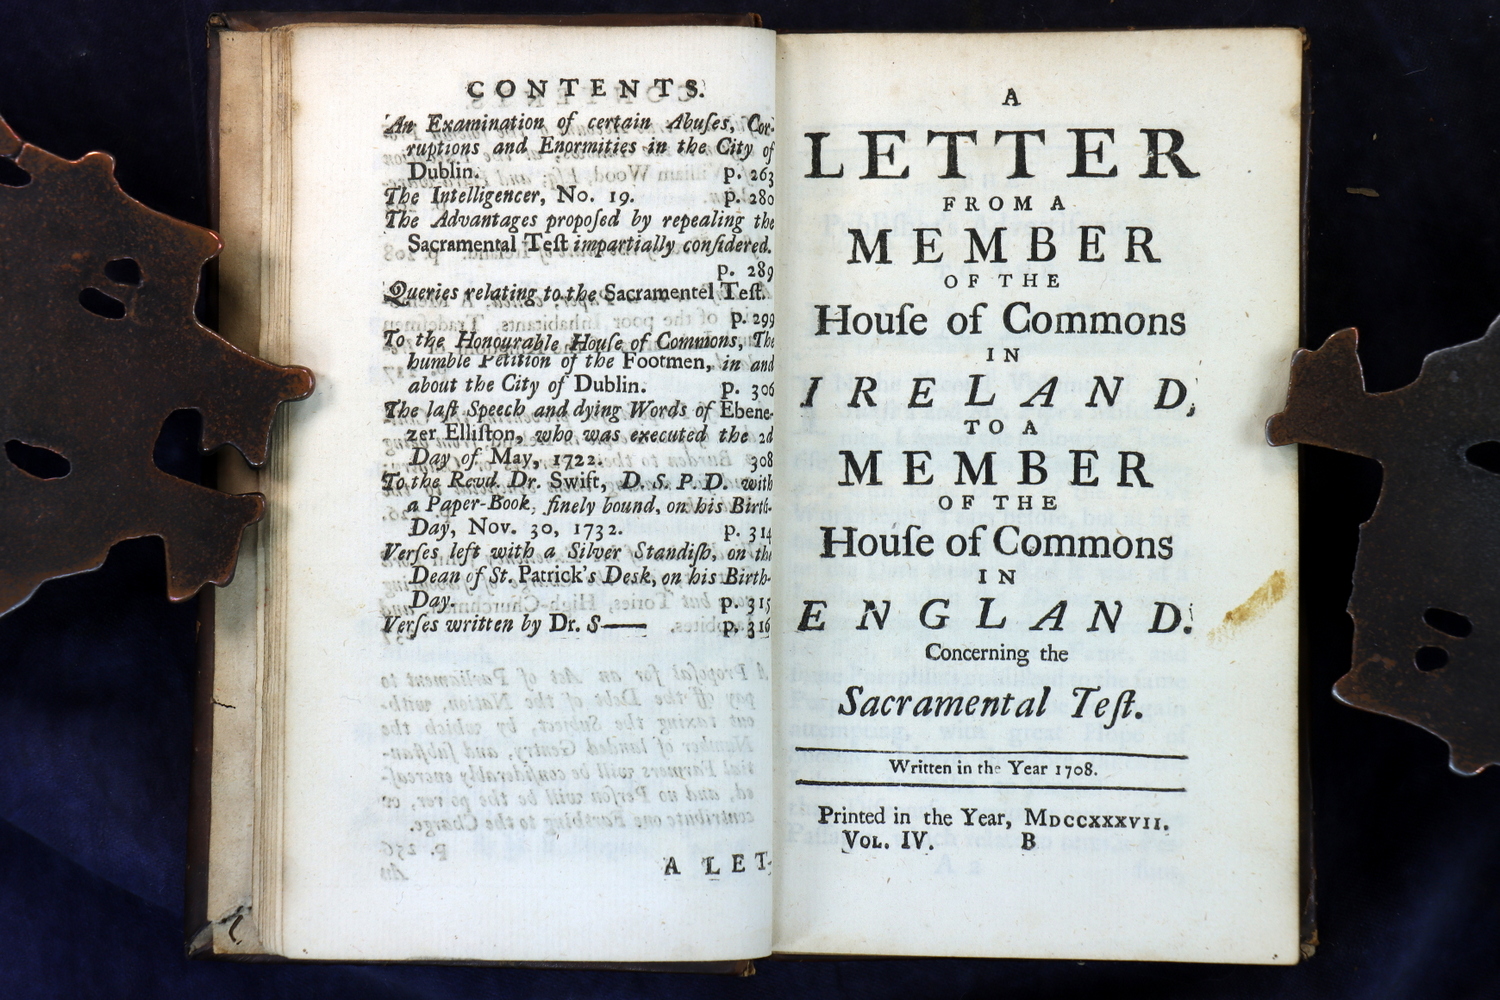 CONTENTS.
An Examination of certain Abuſes, Cor-
ruptions and Enormities in the City of
Dublin. p. 263
The Intelligencer, No. 19. p. 280
The Advantages propoſed by repealing the
Sacramental Teſt impartially conſidered.
p. 289
Queries relating to the Sacramentel Teſt.
p. 299
To the Honourable Houſe of Commons, The
humble Petition of the Footmen, in and
about the City of Dublin. p. 306
The laſt Speech and dying Words of Ebene-
zer Elliſton, who was executed the 2d
Day of May, 1722. 308
To the Revd. Dr. Swift, D. S. P. D. with
a Paper-Book, finely bound, on his Birth-
Day, Nov. 30, 1732. p. 314
Verſes left with a Silver Standiſh, on the
Dean of St. Patrick's Desk, on his Birth-
Day. p. 315
Verſes written by Dr. S—— p. 316
A LET-
A
LETTER
FROM A
MEMBER
OF THE
Houſe of Commons
IN
IRELAND,
TO A
MEMBER
OF THE
Houſe of Commons
IN
ENGLAND.
Concerning the
Sacramental Teſt.
Written in the Year 1708.
Printed in the Year, MDCCXXXVII.
VOL. IV. B